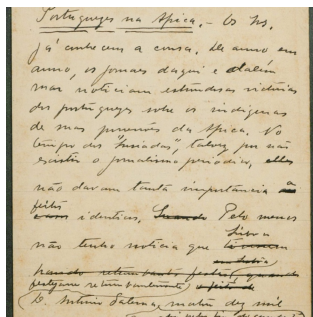 Portuguezes na Africa. – Os Srs.
já conhecem a cousa. De anno em
anno, os jornaes daqui e dalém
mar noticiam estrondosas victorias
dos portuguezes sobre os indigenas
de suas possessões da Africa. No
tempo dos "Lusiadas", talvez por não
existir o jornalismo periodico, elles
não davam tanta importancia a
feitos
identicos. Pelo menos
Lisboa
não tenho noticia que
festejasse retumbantemente o feito de
D. Antonio matou dez mil